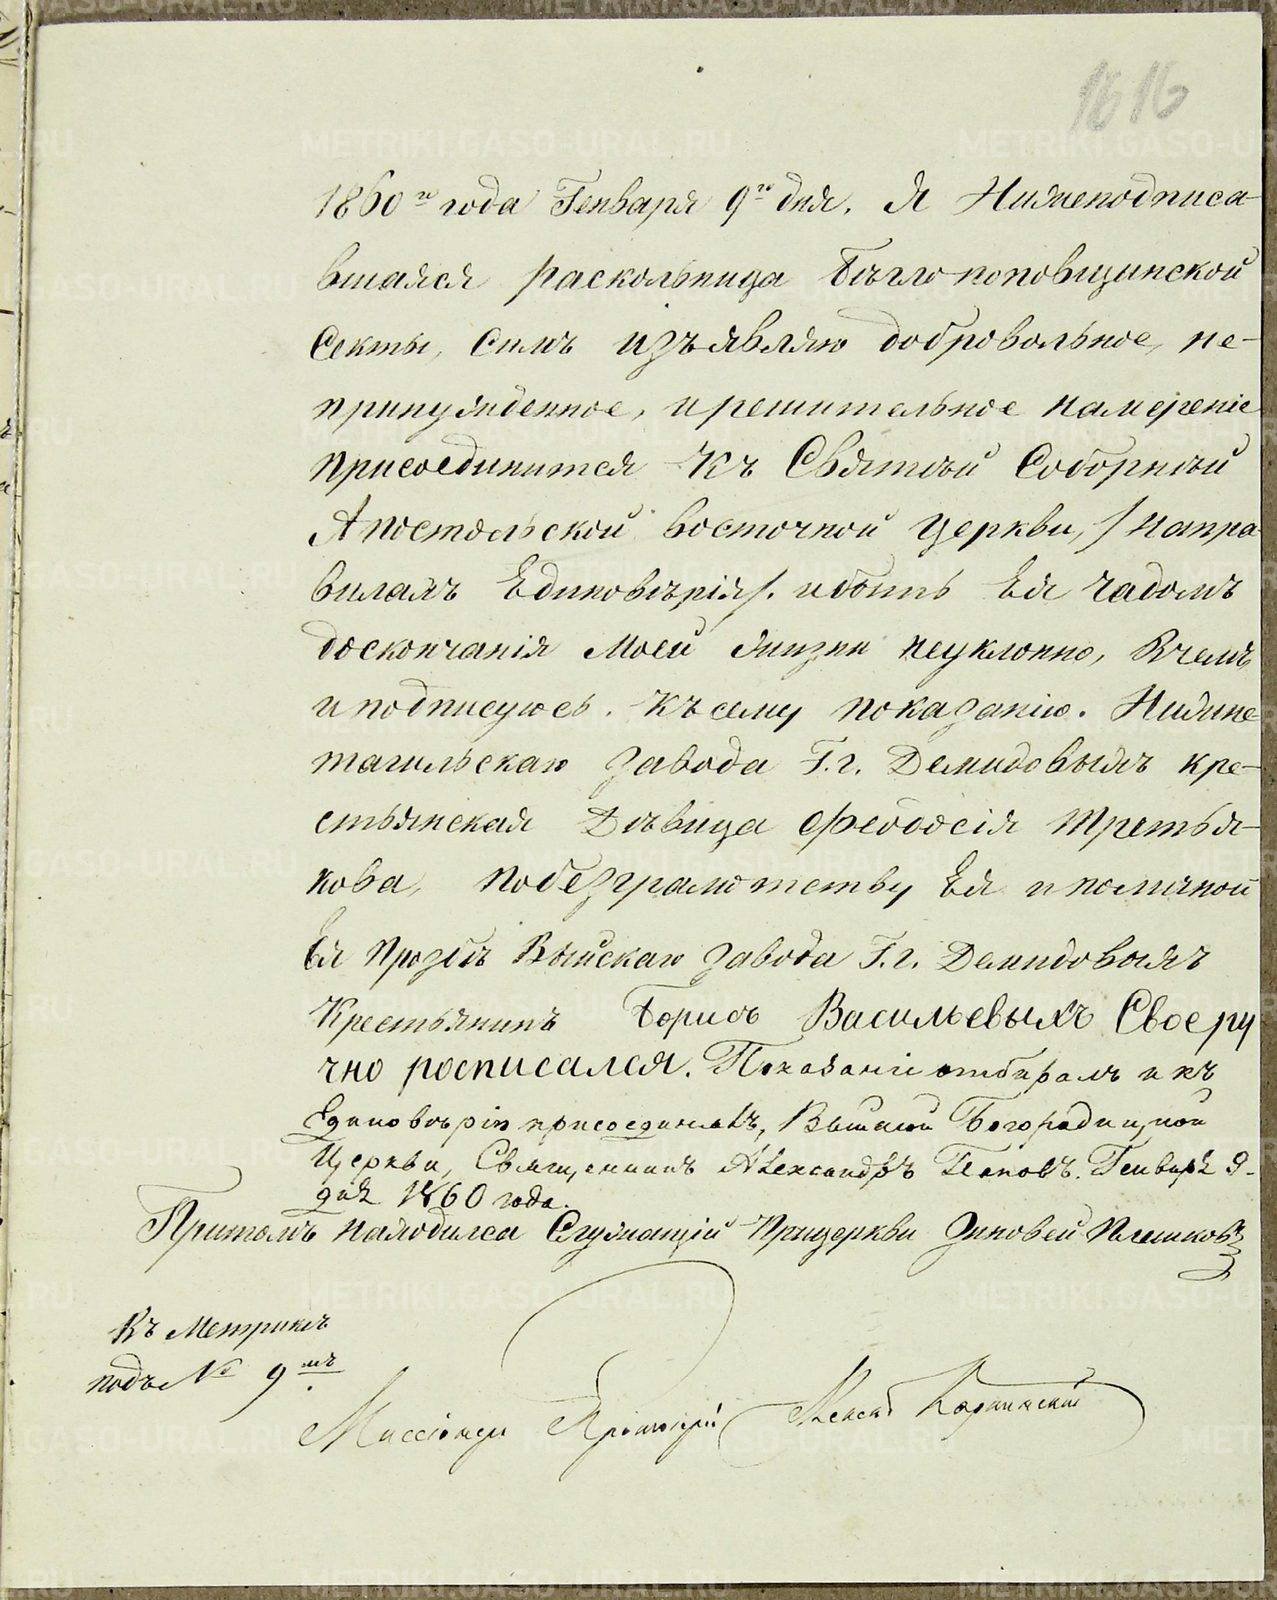 16 16
1860го года Генваря 9го дня. Я Нижеподписа-
вшаяся раскольница бѣгло поповщинской
Секты, Симъ изъявляю добровольное, не-
принужденное, и решительное намереніе
присоединится Къ Святѣй Соборнѣй
Апостольской восточной церкви, /напра
виламъ Единовѣрія/. ибыть Ея чадомъ
доскончанія Моей жизни неуклонно, Вчемъ
и подписуюсь. Къ сему показанію. Нижне
тагильскаго завода Г.г. Демидовыхъ кре-
стьянская Дѣвица Феодосія Третья-
кова, побезграмотству Ея и поличной
Ея прозбѣ Выйскаго завода Г.г. Демидовыхъ
Крестьянинъ Борисъ Васильевыхъ Своеру
чно росписался. Показаніе отбиралъ и къ
Единовѣрію присоединялъ, Выйской Богородицкой
Церкви, Священникъ Александръ Поповъ. Генваря 9-
дня 1860 года.
Притомъ находился Служащій Прицеркви Зиновей Плешковъ
Въ Метрикѣ
подъ № 9мъ.
Миссіонеръ Протоіерей